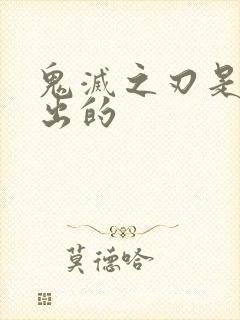 鬼滅之刃是
出的
莫德哈